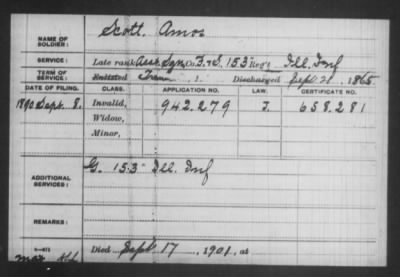 NAME OF SOLDIER: Scott, Amos
SERVICE: Late rank Asst Sgn, Co. F. & S. 153 Reg't Ill. Inf
TERM OF SERVICE: Enlisted , 1 . Discharged Sept. 21, 1865
DATE OF FILING. CLASS. APPLICATION NO. LAW. CERTIFICATE NO.
1890 Sept. 8. Invalid, 942.279 J. 658.281
Widow,
Minor,
ADDITIONAL SERVICES: G. 153 Ill. Inf
REMARKS:
Died Sept 17, 1901, at